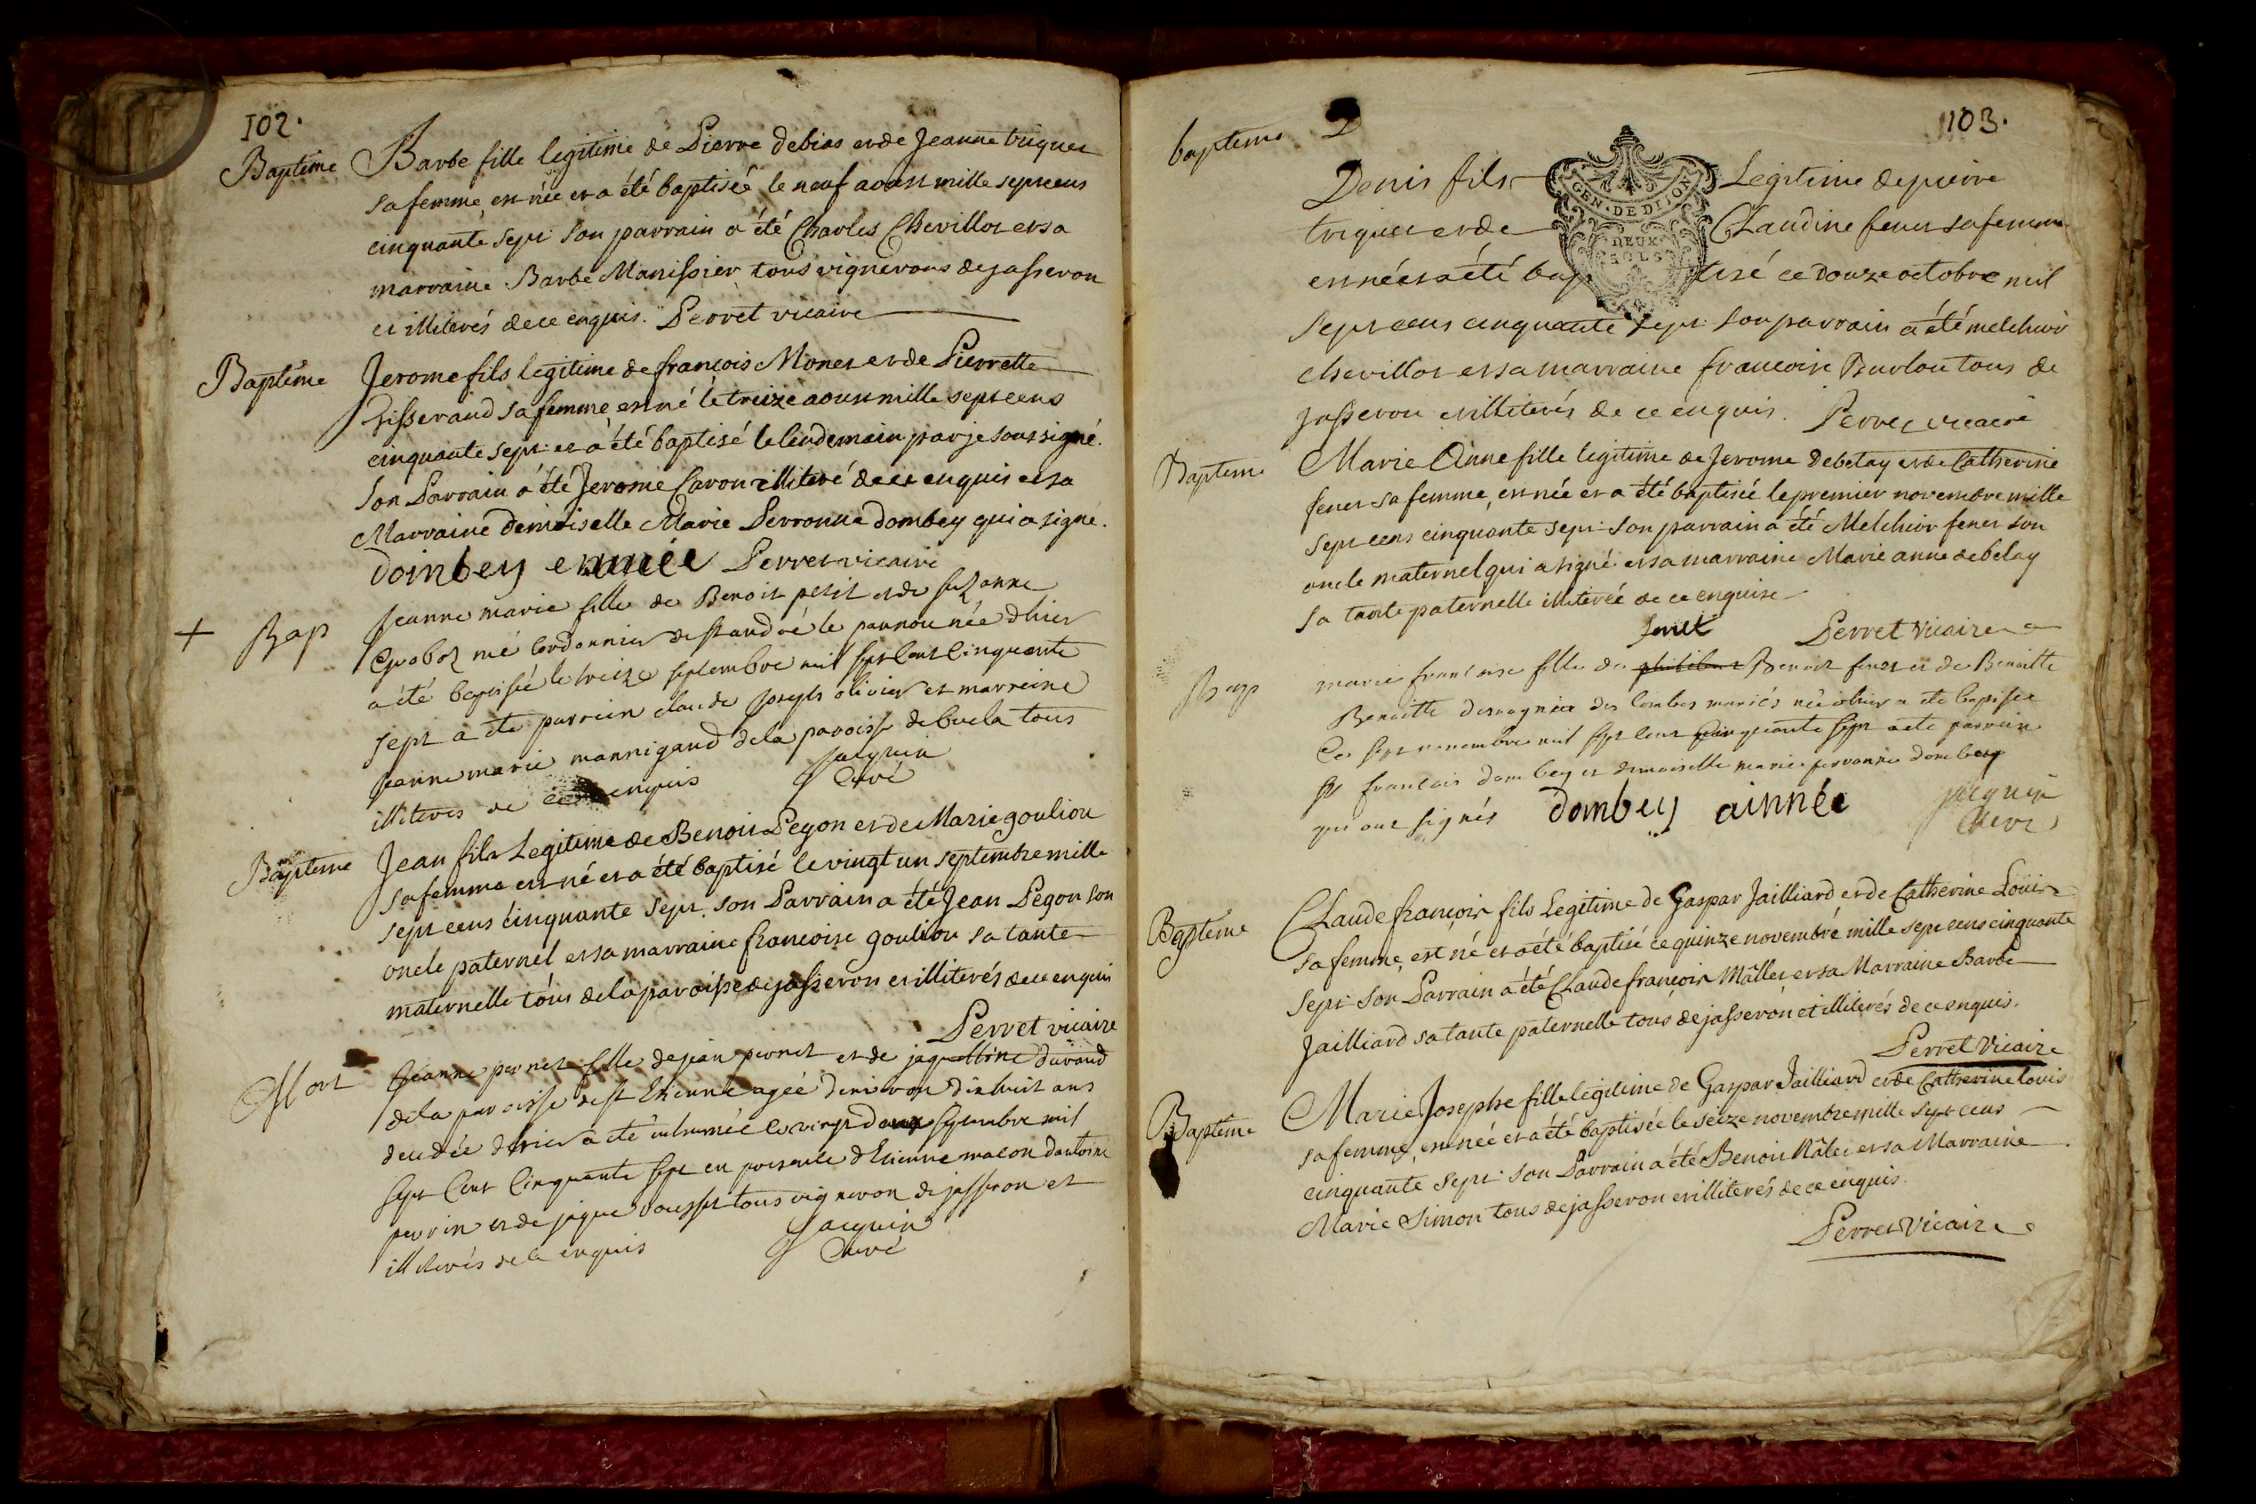 102.
Baptême Barbe fille legitime de Pierre debias et de Jeanne triquet
sa femme, est née et a été baptisée le neuf aoust mille sept cens
cinquante sept son parrain a été Charles Chevillot et sa
marraine Barbe Manissier tous vignerons de jasseron
et illiterés de ce enquis. Perret vicaire
Baptême Jerome fils legitime de françois Monet et de Pierrette
Tisserand sa femme est né le treize aoust mille sept cens
cinquante sept et a été baptisé le lendemain par je soussigné.
son Parrain a été Jerome Caron illiteré de ce enquis et sa
Marraine demoiselle Marie Perronne dombey qui a signé.
dombey ennée Perret vicaire
+ Bap Jeanne marie fille de Benoit petit et de suzanne
né cordonnier de st andré le pannou née dhier
a été baptisée le treize septembre mil sept cent cinquante
sept a ete parrein claude joseph olivier et marreine
jeanne marie mannigand de la paroisse de buela tous
illiteres de ce enquis Jacquin
Curé
Bapteme Jean fils Legitime de Benoit Pegon et de Marie gouliou
sa femme est né et a été baptisé le vingt un septembre mille
sept cens cinquante sept. son Parrain a été Jean Pegon son
oncle paternel et sa marraine francoise gouliou sa tante
maternelle tous de la paroisse de jasseron et illiterés de ce enquis
Perret vicaire
Mort Jeanne pernet fille de jean pernet et de jaquelline durand
de la paroisse de st Etienne agée denviron dix huit ans
decedée dhier a été inhumée le vingt deux septembre mil
sept Cent Cinquante sept en presence d'Etienne macon dantoine
perrin et de jaque tous vigneron de jasseron et
illiterés de ce enquis Jacquin
Curé
103.
bapteme D
Denis fils Legitime de pierre
triquet et de Claudine fenet sa femme
est né et a été baptisé ce douze octobre mil
sept cens cinquante sept son parrain a été melchior
chevillot et sa marraine francoise Burlou tous de
jasseron et illiterés de ce enquis. Perret vicaire
GEN. DE DIJON
DEUX
SOLS
Bapteme Marie Anne fille legitime de Jerome debelay et de Catherine
fenet sa femme, est née et a été baptisée le premier novembre mille
sept cens cinquante sept son parrain a été Melchior fenet son
oncle maternel qui a signé et sa marraine Marie anne debelay
sa tante paternelle illiterée de ce enquise
fenet Perret Vicaire
Bap marie francoise fille de philibert Benoit fenet et de Benoitte
Benoitte des combes mariés née dhier a ete baptisée
Ce sept novembre mil sept cent cinquante sept a ete parrein
sr francois dombey et demoiselle marie perronne dombey
qui ont signés dombey ainnée jacquin
Curé
Bapteme Claude françois fils Legitime de Gaspar Jailliard et de Catherine Louis
sa femme, est né et a été baptisé ce quinze novembre mille sept cens cinquante
sept son Parrain a été Claude françois Mâllet et sa Marraine Barbe
Jailliard sa tante paternelle tous de jasseron et illiterés de ce enquis.
Perret Vicaire
Bapteme Marie Josephe fille legitime de Gaspar Jailliard et de Catherine Louis
sa femme, est née et a été baptisée le seize novembre mille sept cens
cinquante sept son Parrain a été Benoit et sa Marraine
Marie Simon tous de jasseron et illiterés de ce enquis.
Perret Vicaire